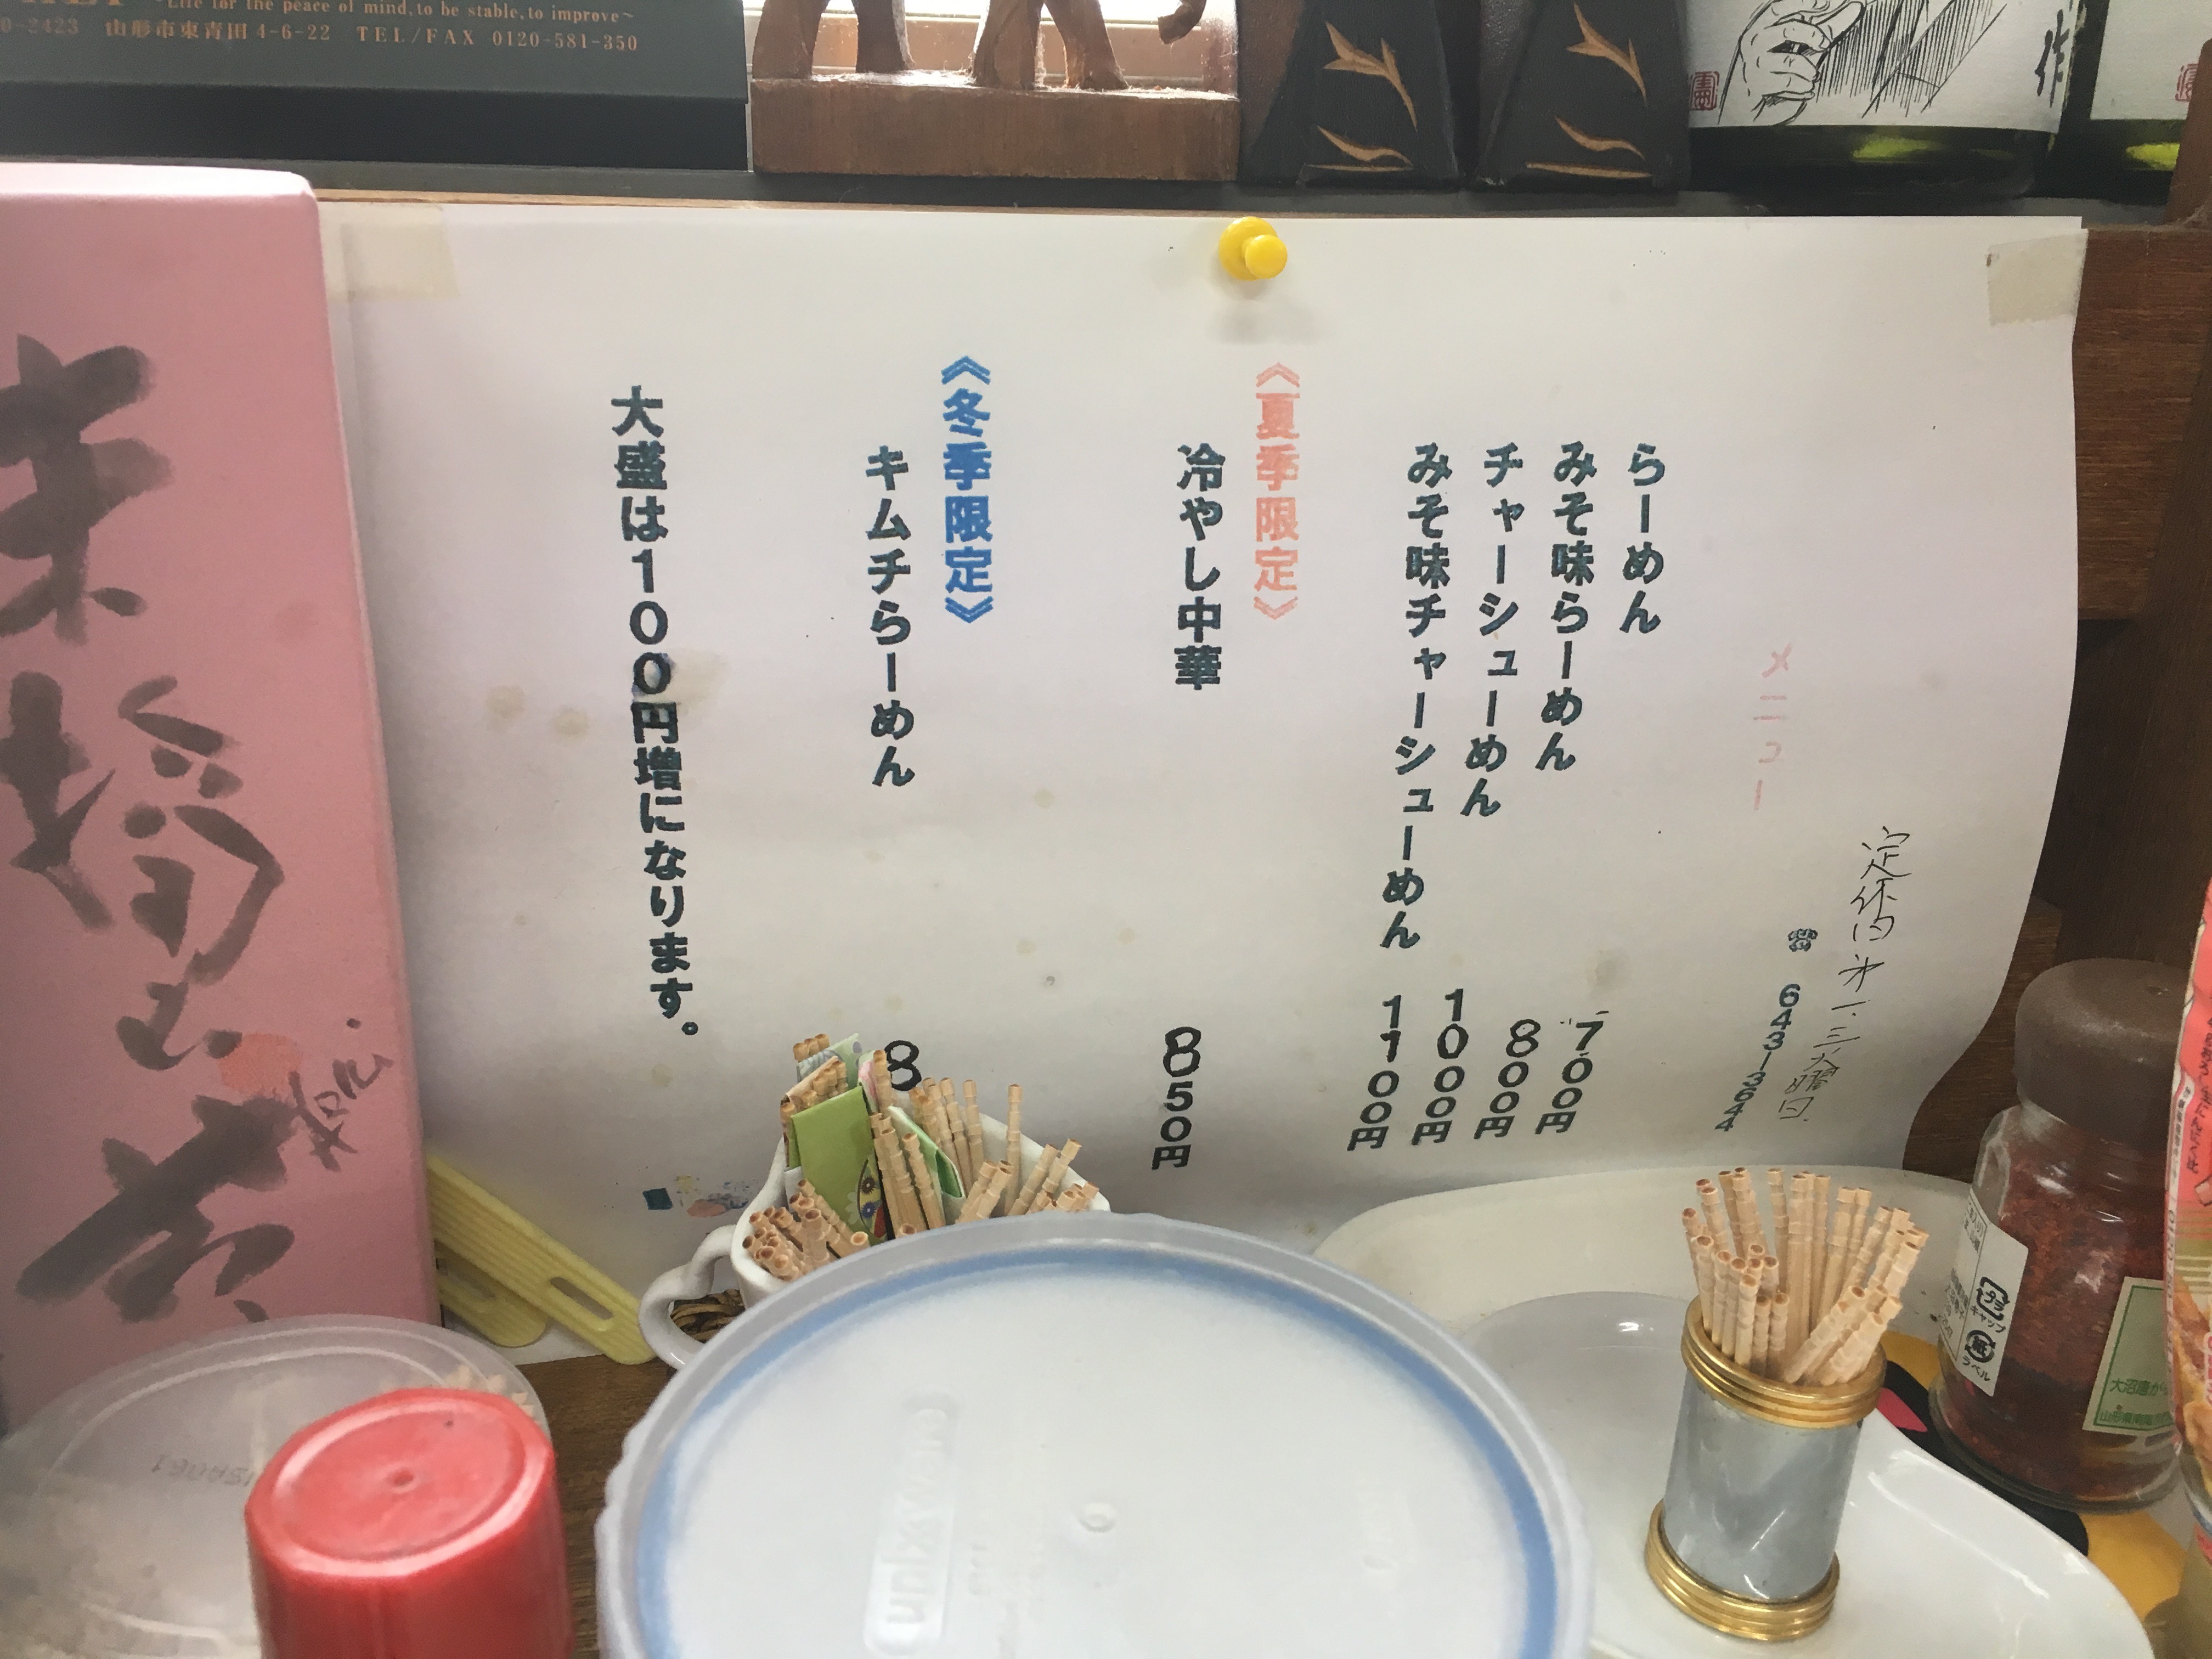 ~Life for the peace of mind,to be stable,to improve~
0-2423 山形市東青田4-6-22 TEL/FAX 0120-581-350
作
定休日 第一.三火曜日
☎ 643-1364
メニュー
らーめん 700円
みそ味らーめん 800円
チャーシューめん 1000円
みそ味チャーシューめん 1100円
《夏季限定》
冷やし中華 850円
《冬季限定》
キムチらーめん 8
大盛は100円増になります。
キャップ
紙
ラベル
大沼唐が